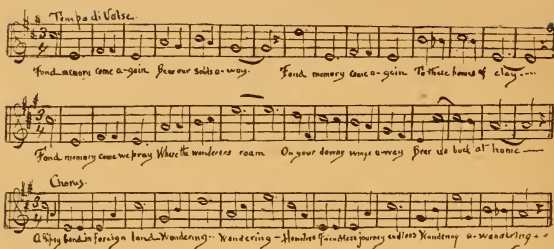 Tempo di Valse.
Fond memory come a-gain Bear our souls a-way. Fond memory come a-gain To these homes of clay
Fond memory come we pray Where the wanderers roam On your downy wings a-way Bear us back at home
Chorus.
A Gipsy band in foreign land Wandering Wandering Homeless journey endless Wandering a-wandering